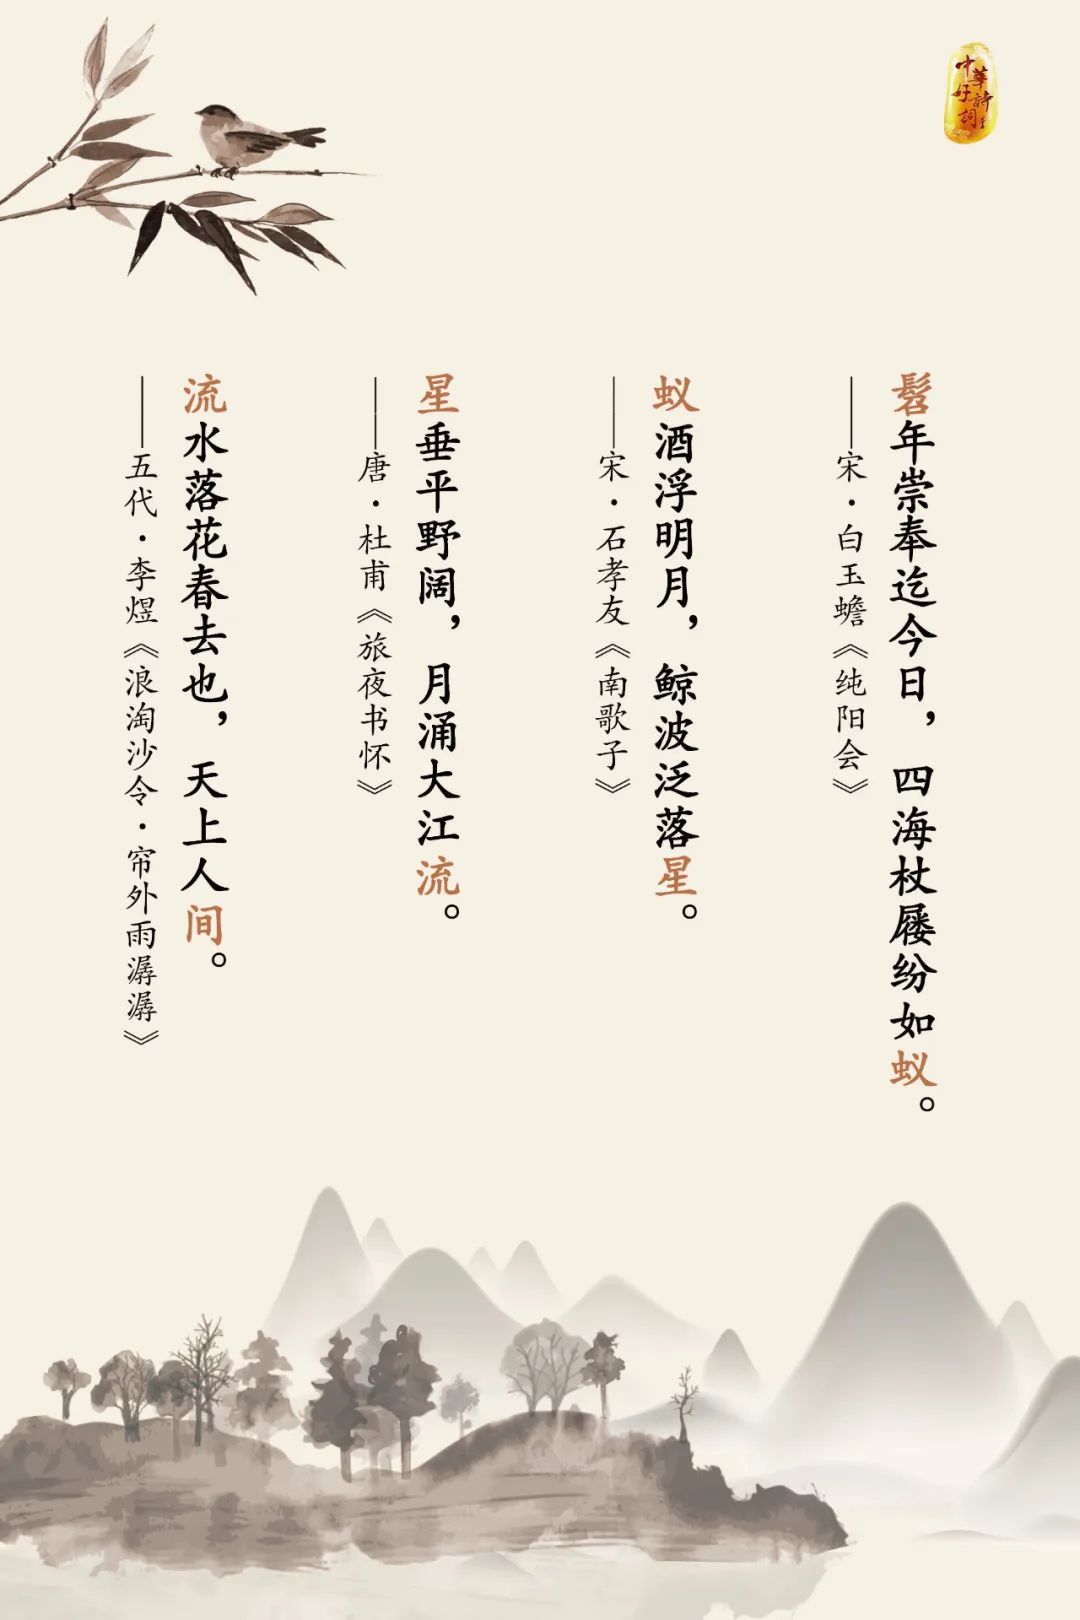 中华好诗词
髫年崇奉迄今日，四海杖屦纷如蚁。
——宋·白玉蟾《纯阳会》
蚁酒浮明月，鲸波泛落星。
——宋·石孝友《南歌子》
星垂平野阔，月涌大江流。
——唐·杜甫《旅夜书怀》
流水落花春去也，天上人间。
——五代·李煜《浪淘沙令·帘外雨潺潺》